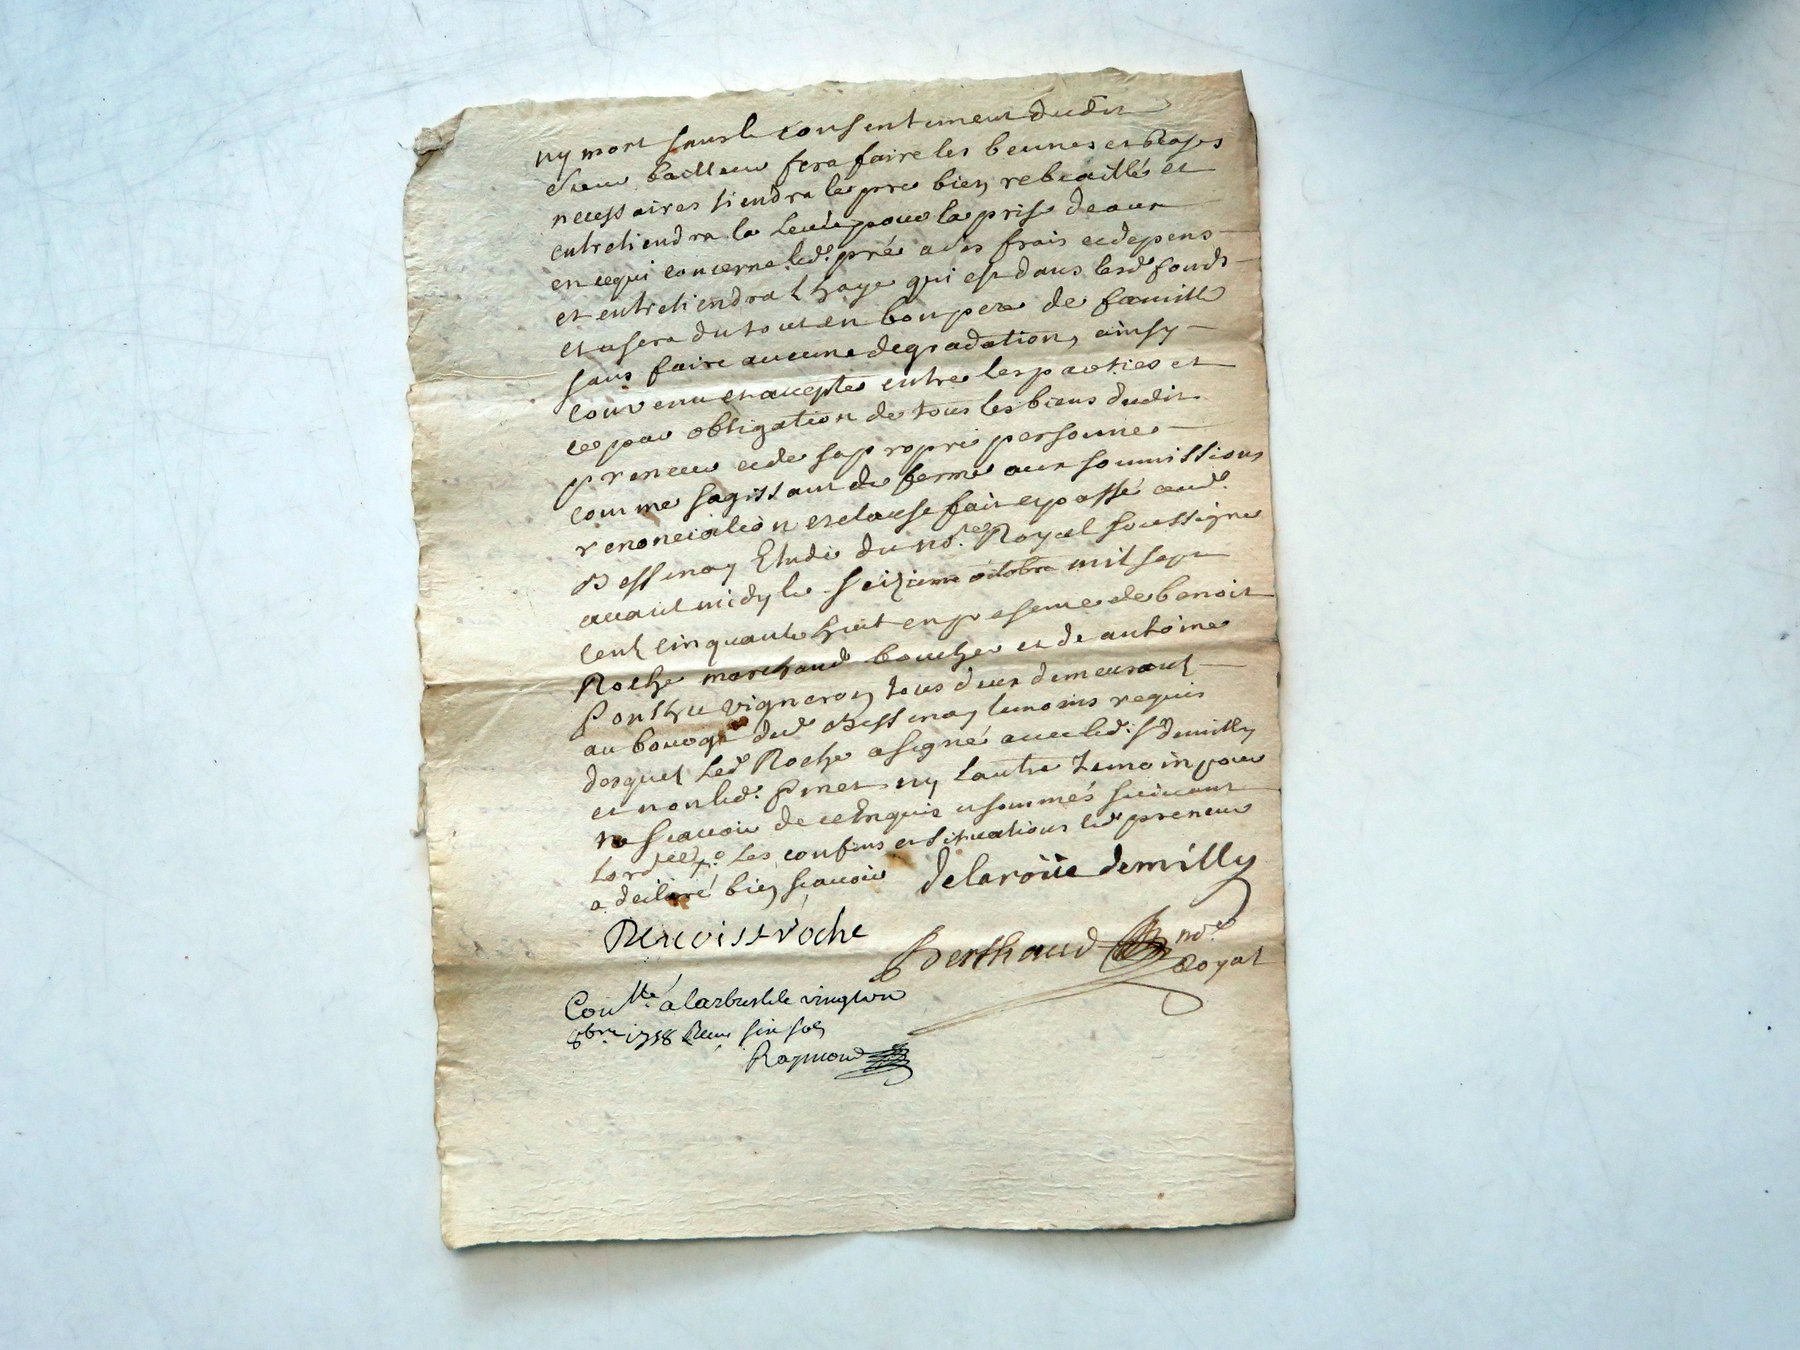 ny mort sans le consentement dudit
sieur bailleur fera faire les bennes et
necessaires tiendra le pre bien recbaillé et
entretiendra la levée pour la prise deaux
en cequi concerne led. pré a ses frais et depens
et entretiendra lhaye qui est dans lesd fonds
et usera du tout en bon pere de famille
sans faire aucune degradation, ainsy
convenu et accepté entre les parties et
ce par obligation de tous les biens dudit
preneur et de sa propre personne
comme sagissant de ferme aux soumissions
renonciation et clause fait et passé aud.
Bessenay Etude du no.re Royal soussigné
avant midy le seizieme octobre mil sept
cent cinquante huit en presence de benoit
Roche marchand boucher et de antoine
vigneron tous deux demeurant
au bourg dud Bessenay temoins requis
desquel led Roche a signé avec led. Sr demilly
et non led. Pinet ny lautre temoin pour
ne scavoir de ce enquis et sommés suivant
lord.ce les confins et situations led preneur
a declaré bien scavoir delaroüe demilly
Benoist roche
Berthaud no.re
Royal
Con.llé a larbresle le vingt un
8bre 1758 Receu six sols
Raymond